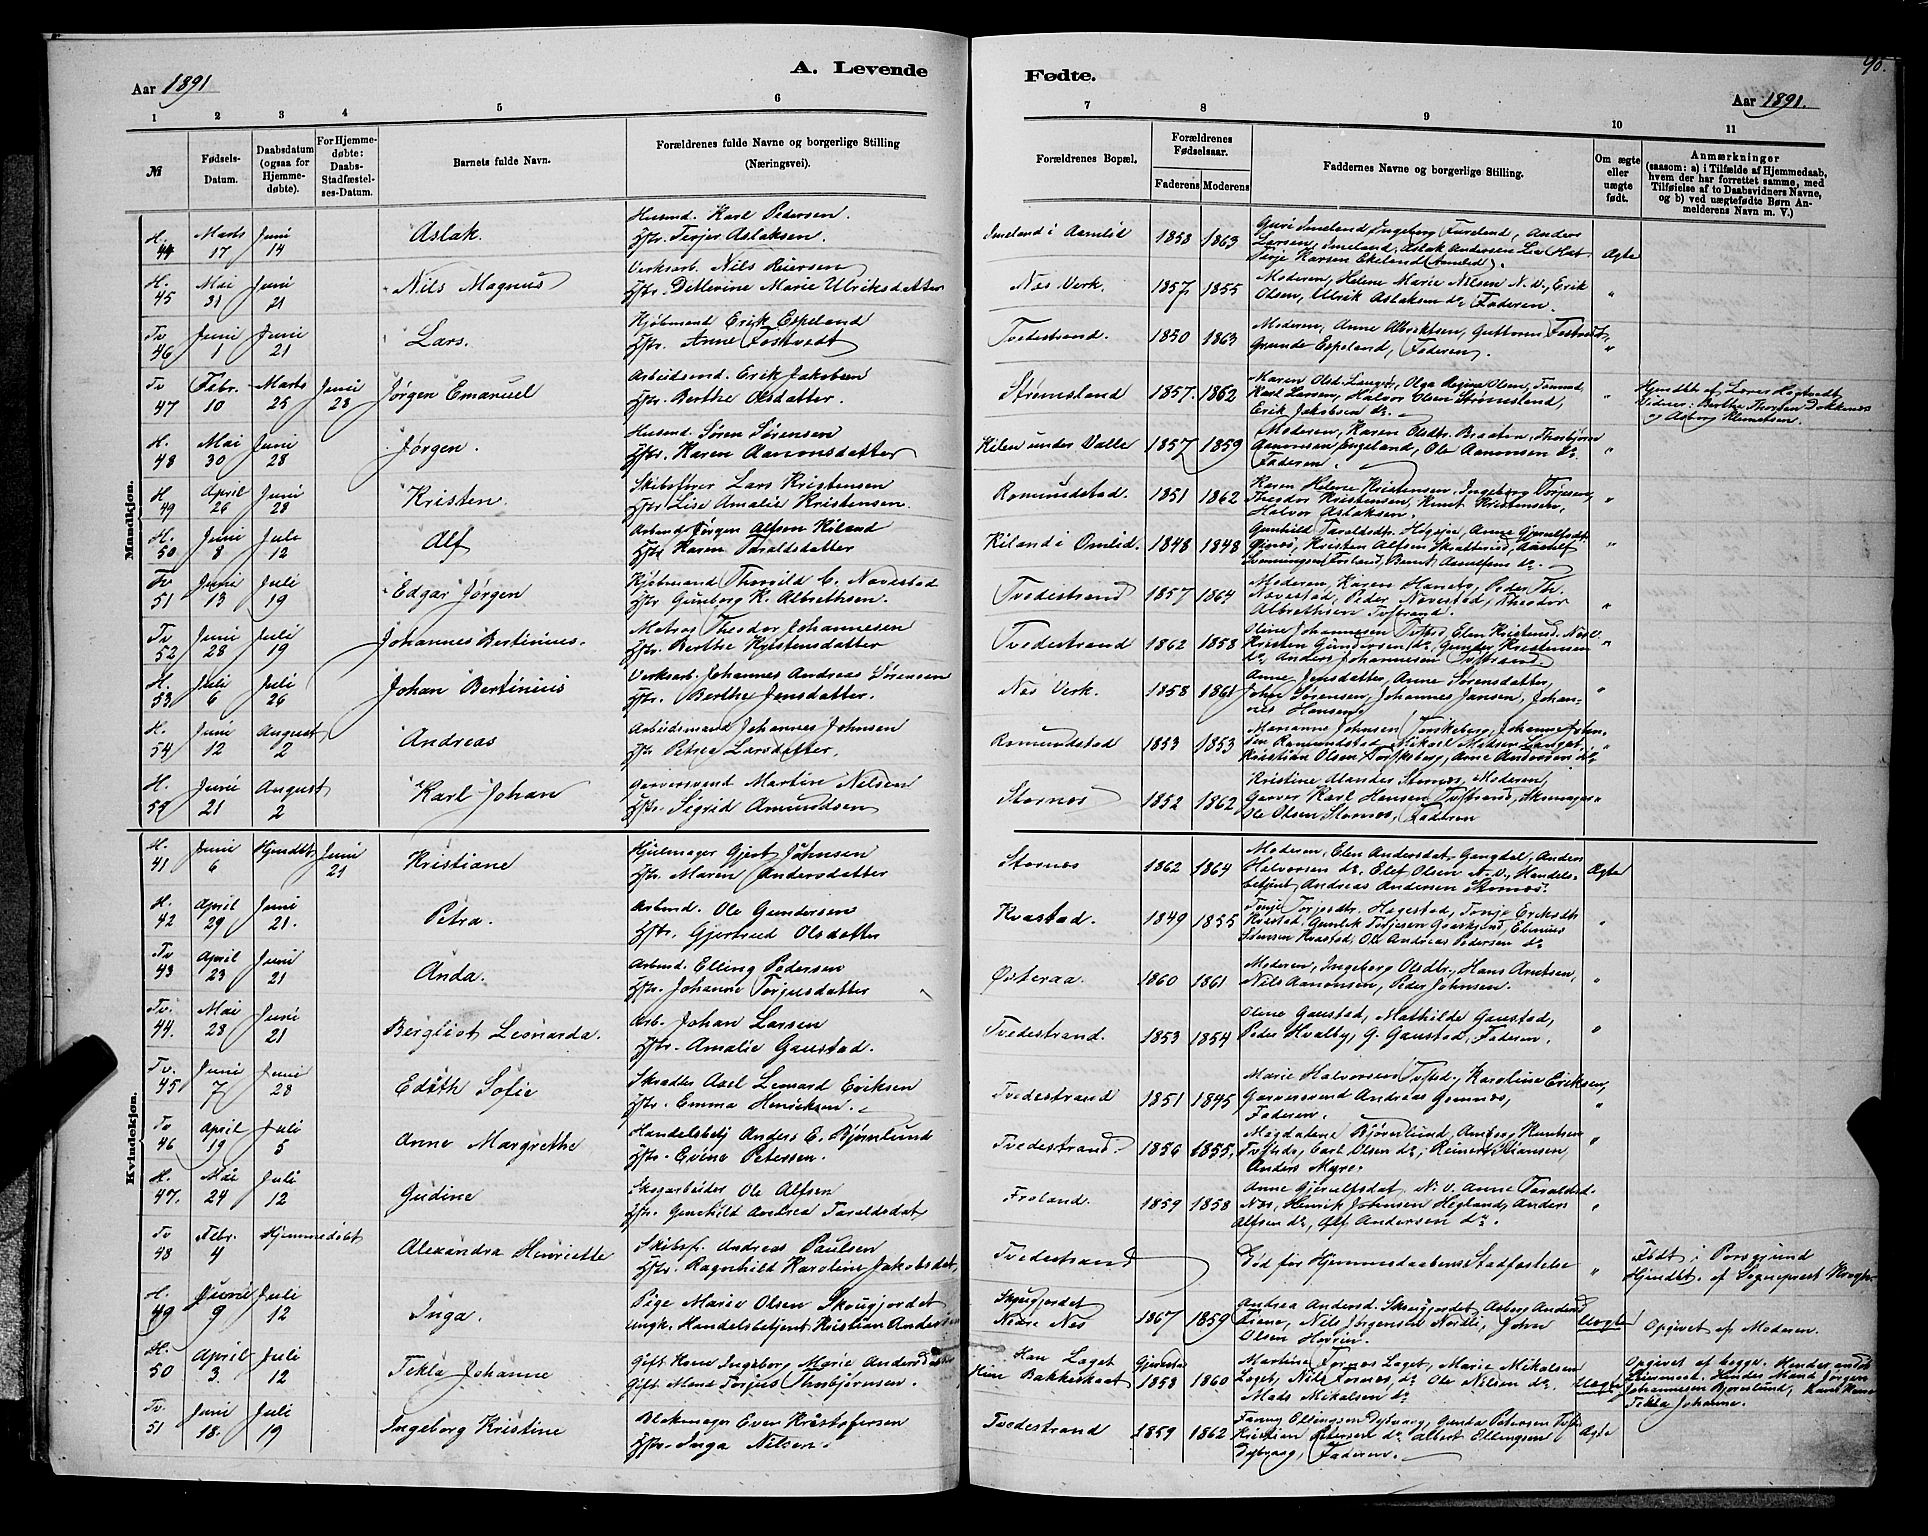 96.
Aar 1891
A. Levende
Fødte.
Aar 1891.
1 2 3 4 5 6 7 8 9 10 11
№
Fødsels-
Datum.
Daabsdatum
(ogsaa for
Hjemme-
døbte).
For Hjemme-
døbte:
Daabs-
Stadfæstel-
ses-Datum.
Barnets fulde Navn.
Forældrenes fulde Navne og borgerlige Stilling
(Næringsvei).
Forældrenes Bopæl.
Forældrenes
Fødselsaar.
Faderens Moderens
Faddernes Navne og borgerlige Stilling.
Om ægte
eller
uægte
født.
Anmærkninger
(saasom: a) i Tilfælde af Hjemmedaab,
hvem der har forrettet samme, med
Tilføielse af to Daabsvidners Navne,
og b) ved uægtefødte Børn An-
melderens Navn m. V.)
Mandkjøn.
H. 44 Marts 17 Juni 14 Aslak.
Husmd. Karl Pedersen.
Hstr. Terjer Aslaksen.
Imeland i Aamlid 1858 1863
Guri Imeland, Ingeborg Fureland, Anders
Larsen, Imeland, Aslak Andersen
Terje Karsen Ekeland (Aamlid).
Ægte
H. 45 Mai 31 Juni 21 Nils Magnus
Verksarb. Nils Reiersen
Hstr. Detlevine Marie Ulriksdatter
Nes Verk. 1857 1855
Moderen, Helene Marie Nilsen N. V., Erik
Olsen, Ulrik Aslaksen do, Faderen.
"
Tv 46 Juni 1 Juni 21 Lars.
Kjøbmand Erik Espeland
Hstr. Anne Fostvedt
Tvedestrand. 1850 1863
Moderen, Anne Albretsen, Guttorm Fostvedt,
Gunde Espeland, Faderen.
"
Tv 47 Febr. 10 Marts 25 Juni 28 Jørgen Emanuel
Arbeidsmd. Erik Jakobsen
Hstr. Berthe Olsdatter.
Strømsland 1857. 1862
Maren Olsd. Langør, Olga Regine Olsen,
Karl Larsen, Halvor Olsen Strømsland,
Erik Jakobsen do.
"
Hjmdbt af Lærer Hogtvedt
Vidner: Berthe Thorsen Dokkenes
og Asborg Klemetsen.
H. 48 Mai 30 Juni 28 Jørgen.
Husmd. Søren Sørensen
Hstr. Karen Aanonsdatter
Kilen under Valle 1857 1859
Moderen, Karen Olsdtr. Braaten, Thorbjørn
Aanonsen Engeland, Ole Aanonsen do.
Faderen.
"
H 49 April 26 Juni 28 Kristen
Skibsfører Lars Kristensen
Hstr Lise Amalie Kristensen.
Romundstad. 1851 1862
Karen Helene Kristensen, Ingeborg Torjesen,
Theodor Kristensen, Knut Kristensen,
Halvor Aslaksen.
"
H. 50 Juni 8 Juli 12 Alf
Arbmd Jørgen Alfsen Kiland
Hstr Karen Taraldsdatter
Kiland i Omlid. 1848 1848
Gunhild Taraldsdt. Anne Gjerulfsdt.
Kristen Alfsen
"
Tv 51 Juni 13 Juli 19 Edgar Jørgen
Kjøbmand Thorvild C. Navestad
Hstr Gunborg K. Albrethsen.
Tvedestrand 1857 1864
Moderen, Karen Peder Th.
Navestad, Peder Navestad, Theodor
Albrethsen Tvstrand.
"
Tv 52 Juni 28 Juli 19 Johannes Bertinius.
Matros Theodor Johannesen
Hstr. Berthe Kristensdatter
Tvedestrand 1862 1858
Oline Johannesen Tvstrd, Elen Kristensd. Nes V.
Kristen Gundersen do, Gunder Kristensen
do, Anders Johannesen Tvstrand.
"
H. 53 Juli 6 Juli 26 Johan Bertinius
Verksarb. Johannes Andreas Sørensen
Hstr. Berthe Jensdatter.
Nes Verk. 1858 1861
Anne Jensdatter, Anne Sørensdatter,
John Sørensen, Johannes Jansen, Johan-
nes Hansen.
"
H. 54 Juni 12 August 2 Andreas
Arbeidsmand Johannes Johnsen
Hstr Petrea Larsdatter.
Romundstad 1853 1853
Marianne Johnsen Torskeberg, Johanne John-
sen Romundstad, Mikael Madsen Laget,
Kristian Olsen Torskeberg, Arne Andersen do
"
H. 55 Juni 21 August 2 Karl Johan
Garversvend Martin Nilsen
Hstr. Sigrid Amundsen
Stornes 1852 1862
Kristine Stornes, Moderen,
Garver Karl Hansen Tvstrand, Skomager
Ole Olsen Stornes, Faderen
"
Kvindekjøn.
H. 41 Juni 6 Hjmdbt Juni 21 Kristiane
Hjulmager Gjert Johnsen
Hstr. Maren Andersdatter
Stornes 1862 1864
Moderen, Elen Andersdat. Gangdal, Anders
Halvorsen do, Elef Olsen N. V., Handels-
betjent Andreas Andersen Stornes.
Ægte
H. 42 April 29 Juni 21. Petra.
Arbmd. Ole Gundersen
Hstr. Gjertrud Olsdatter
Kvastad. 1849 1855
Tonje Torjesdtr. Hagestad, Tonje Eriksdtr
Kvastad, Gunlik Torjesen
Stensen Kvastad, Ole Andreas Pedersen do
"
Tv 43 April 23 Juni 21 Anda.
Arbmd. Elling Pedersen
Hstr. Johanne Torjusdatter
Østeraa. 1860 1861
Moderen, Ingeborg Olsdtr., Hans Arntsen,
Nils Aanonsen, Peder Johnsen.
"
Tv. 44. Mai 28 Juni 21 Bergliot Leonarda.
Arb. Johan Larsen
Hstr. Amalie Gaustad.
Tvedestrand. 1853 1854
Oline Gaustad, Mathilde Gaustad,
Peder Hvalby, G. Gaustad, Faderen.
"
Tv. 45 Juni 7 Juni 28 Edith Sofie
Skrædder Axel Lennard Eriksen
Hstr. Emma Henriksen.
Tvedestrand 1851 1845
Marie Halvorsen Tvstrd., Karoline Eriksen,
Garversvend Andreas Grennes,
Faderen.
"
Tv 46 April 19 Juli 5 Anne Margrethe
Handelsbetj Anders E. Bjørnlund
Hstr. Evine Petersen.
Tvedestrand. 1856 1855.
Magdalene Bjørnlund, Knutsen
Tvstrd, Carl Olsen do, Reinert Stiansen,
Anders Myre.
"
H. 47. Mai 24 Juli 12 Gudine
Skogarbeider Ole Alfsen
Hstr. Gunhild Andrea Taraldsdat
Froland. 1859 1858
Anne Gjerulfsdat. N. V. Anne Taraldsd.
Nes, Henrik Johnsen Hegland, Anders
Alfsen do, Alf Andersen do.
"
Tv 48 Febr. 4 Hjemmedøbt Alexandra Henriette
Skibsf. Andreas Paulsen
Hstr. Ragnhild Karoline Jakobsdat,
Tvedestrand
Død før Hjemmedaabens Stadfæstelse
"
Født i Porsgrund
Hjmdbt. af Sogneprest Krogh.
H. 49 Juni 9 Juli 12 Inga.
Pige Marie Olsen Skougjordet
Ungk. Handelsbetjent Kristian Andersen
Skougjordet
Nedre Nes 1867 1859
Andrea Andersd. Skougjordet, Asborg Andersd
Tiene, Nils Jørgensen Nordli, John
Olsen
Uægte
Opgivet af Moderen.
H. 50 April 3 Juli 12 Tekla Johanne
Gift Kone Ingeborg Marie Andersdatter
Gift Mand Torjus Thorbjørnsen.
Han Laget
Hun Bakkekaat Gjerestad 1858 1860
Martine Fornes Laget, Marie Mikalsen
Laget, Nils Fornes do, Ole Nilsen do,
Mads Mikalsen do
Uægte
Opgivet af begge.
Hendes Mand Jørgen
Johannesen Bjørnlund,
Tekla Johanne.
Tv. 51 Juni 18. Juli 19 Ingeborg Kristine
Blokmager Even Kristofersen
Hstr. Inga Nilsen.
Tvedestrand 1859 1862
Fanny Ellingsen Dybvaag, Gunda Petersen Tvstr
Kristian Petersen do Albert Ellingsen
Dybvaag, Faderen.
Ægte